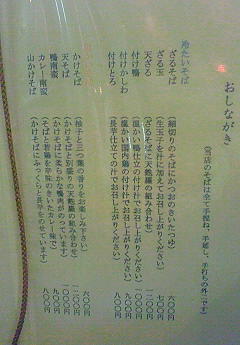 おしながき
(当店のそば全て手捏ね、手延し、手打ちの外一です)
冷たいそば
ざるそば (細切りのそばにかつおのきいたつゆ) 六〇〇円
ざる玉 (生玉子を汁に加えてお召し上がりください) 七〇〇円
天ざる (ざるそばに天麩羅の組み合わせ) 一二〇〇円
付け鴨 (温かい鴨仕立の付け汁でお召し上がりください)
付けかしわ (温かい国内鶏の付け汁でお召し上がりください)
付けとろ (長芋仕立ての汁でお召し上がりください) 八〇〇円
かけそば (柚子と三つ葉の香りをお楽しみ下さい) 六〇〇円
天そば (かけそばと別盛りの天麩羅の組み合わせ)
鴨南蛮 (かけそばに柔らかな鴨肉がのっています)
カレー南蛮 (そばと若鶏を辛味のきいたカレー味で)
山かけそば (かけそばにふっくらと長芋をのせています) 八〇〇円